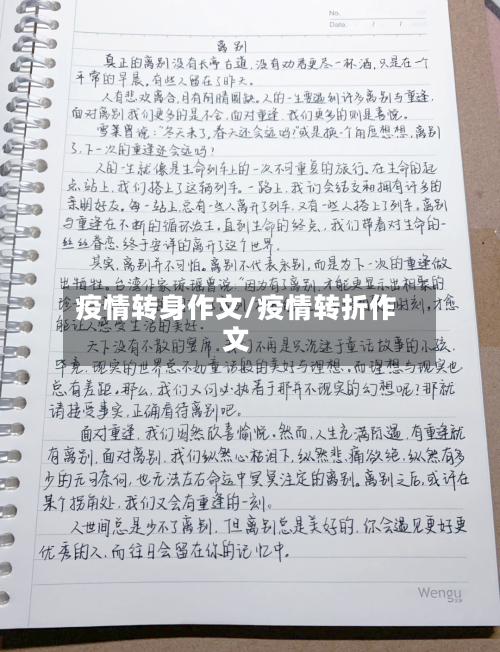 No.
Date. / /
离别
真正的离别没有长亭古道,没有劝君更尽一杯酒,只是在一个
平常的早晨,有些人留在了昨天。
人有悲欢离合,月有阴晴圆缺。人的一生要遇到许多离别与重逢,
面对离别我们更多的是不舍,面对重逢,我们更多的则是喜悦。
雪莱曾说:“冬天来了,春天还会远吗?”或是换一个角度想想,离别
了,下一次的重逢还会远吗?
人的一生就像是生命列车上的一次不可重复的旅行。在生命的起
点站上,我们搭上了这辆列车。一路上,我们会结交和拥有许多的
亲朋好友。每一站上,总有一些人离开了列车,又有一些人搭上了列车。离别
与重逢在不断的循环发生。直到生命的终点,我们带着对生命的一
丝丝眷恋,终于安详的离开了这个世界。
其实,离别并不可怕。离别不代表永别,而是为下一次的重逢做
出牺牲。台湾作家琼瑶曾说:“因为有了离别,才能更显示出相聚的
疫情转身作文/疫情转折作
文
能让人感受生活的美好.
天下没有不散的宴席。我们不再是只沉迷于童话故事的小孩,
毕竟,现实的世界总不如童话般的美好与理想。而理想与现实也
总有差距。那么,我们又何必执着于那并不现实的幻想呢?那就
请接受事实,正确看待离别吧。
面对重逢,我们固然欣喜愉悦。然而,人生充满际遇,有重逢就
有离别,面对离别,我们纵然心枯泪下,纵然悲痛欲绝,纵然有多
少的无可奈何,也无法左右命运中冥冥注定的离别。离别之后,或许在
某个拐角处,我们又会有重逢的一刻。
人世间总是少不了离别,但离别总是美好的,你会遇见更好更
优秀的人,而往日会留在你的记忆中。
Wengu